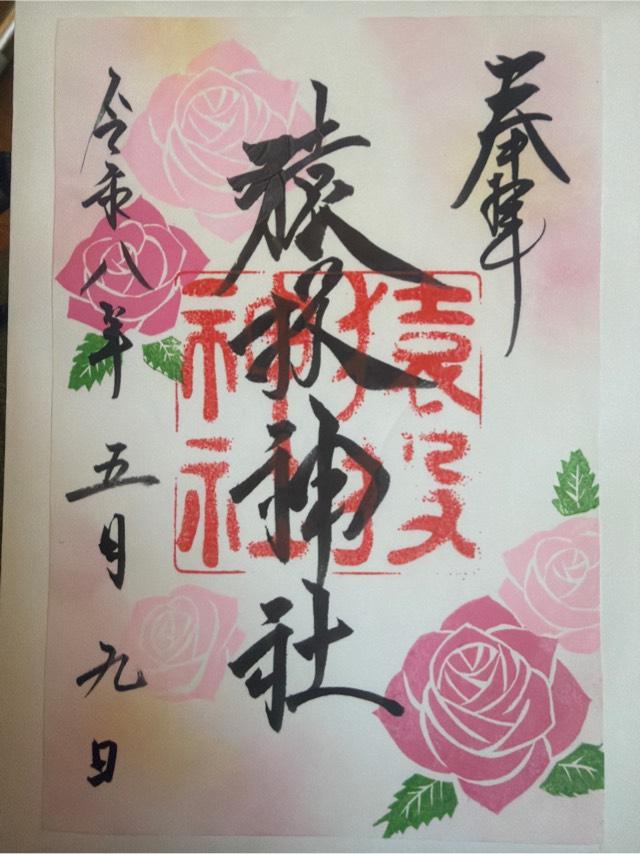 奉拝
猿投神社
令和八年五月九日
猿投
神社